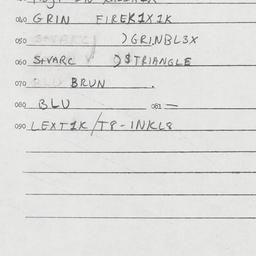 040 GRIN FIREK1X1K
050 )GRINBL3X
060 SVARC )$TRIANGLE
070 BRUN .
080 BLU 081 —
090 LEXT1K/T8-INKL8